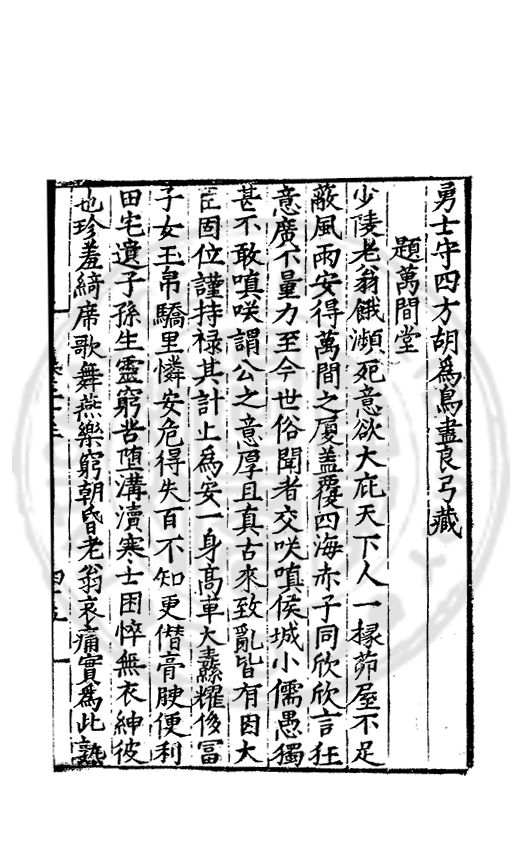 勇士守四方胡為鳥盡良弓藏
題萬間堂
少陵老翁餓瀕死意欲大庇天下人一椽茆屋不足
蔽風雨安得萬間之廈盖覆四海赤子同欣欣言狂
意廣不量力至今世俗聞者交咲嗔侯城小儒愚獨
甚不敢嗔咲謂公之意厚且真古來致亂皆有因大
臣固位謹持禄其計止為安一身高車大纛耀後冨
子女玉帛驕里憐安危得失百不知更僭膏腴便利
田宅遺子孫生靈窮苦堕溝瀆寒士困悴無衣紳彼
也珍羞綺席歌舞燕樂窮朝昏老翁哀痛實為此孰